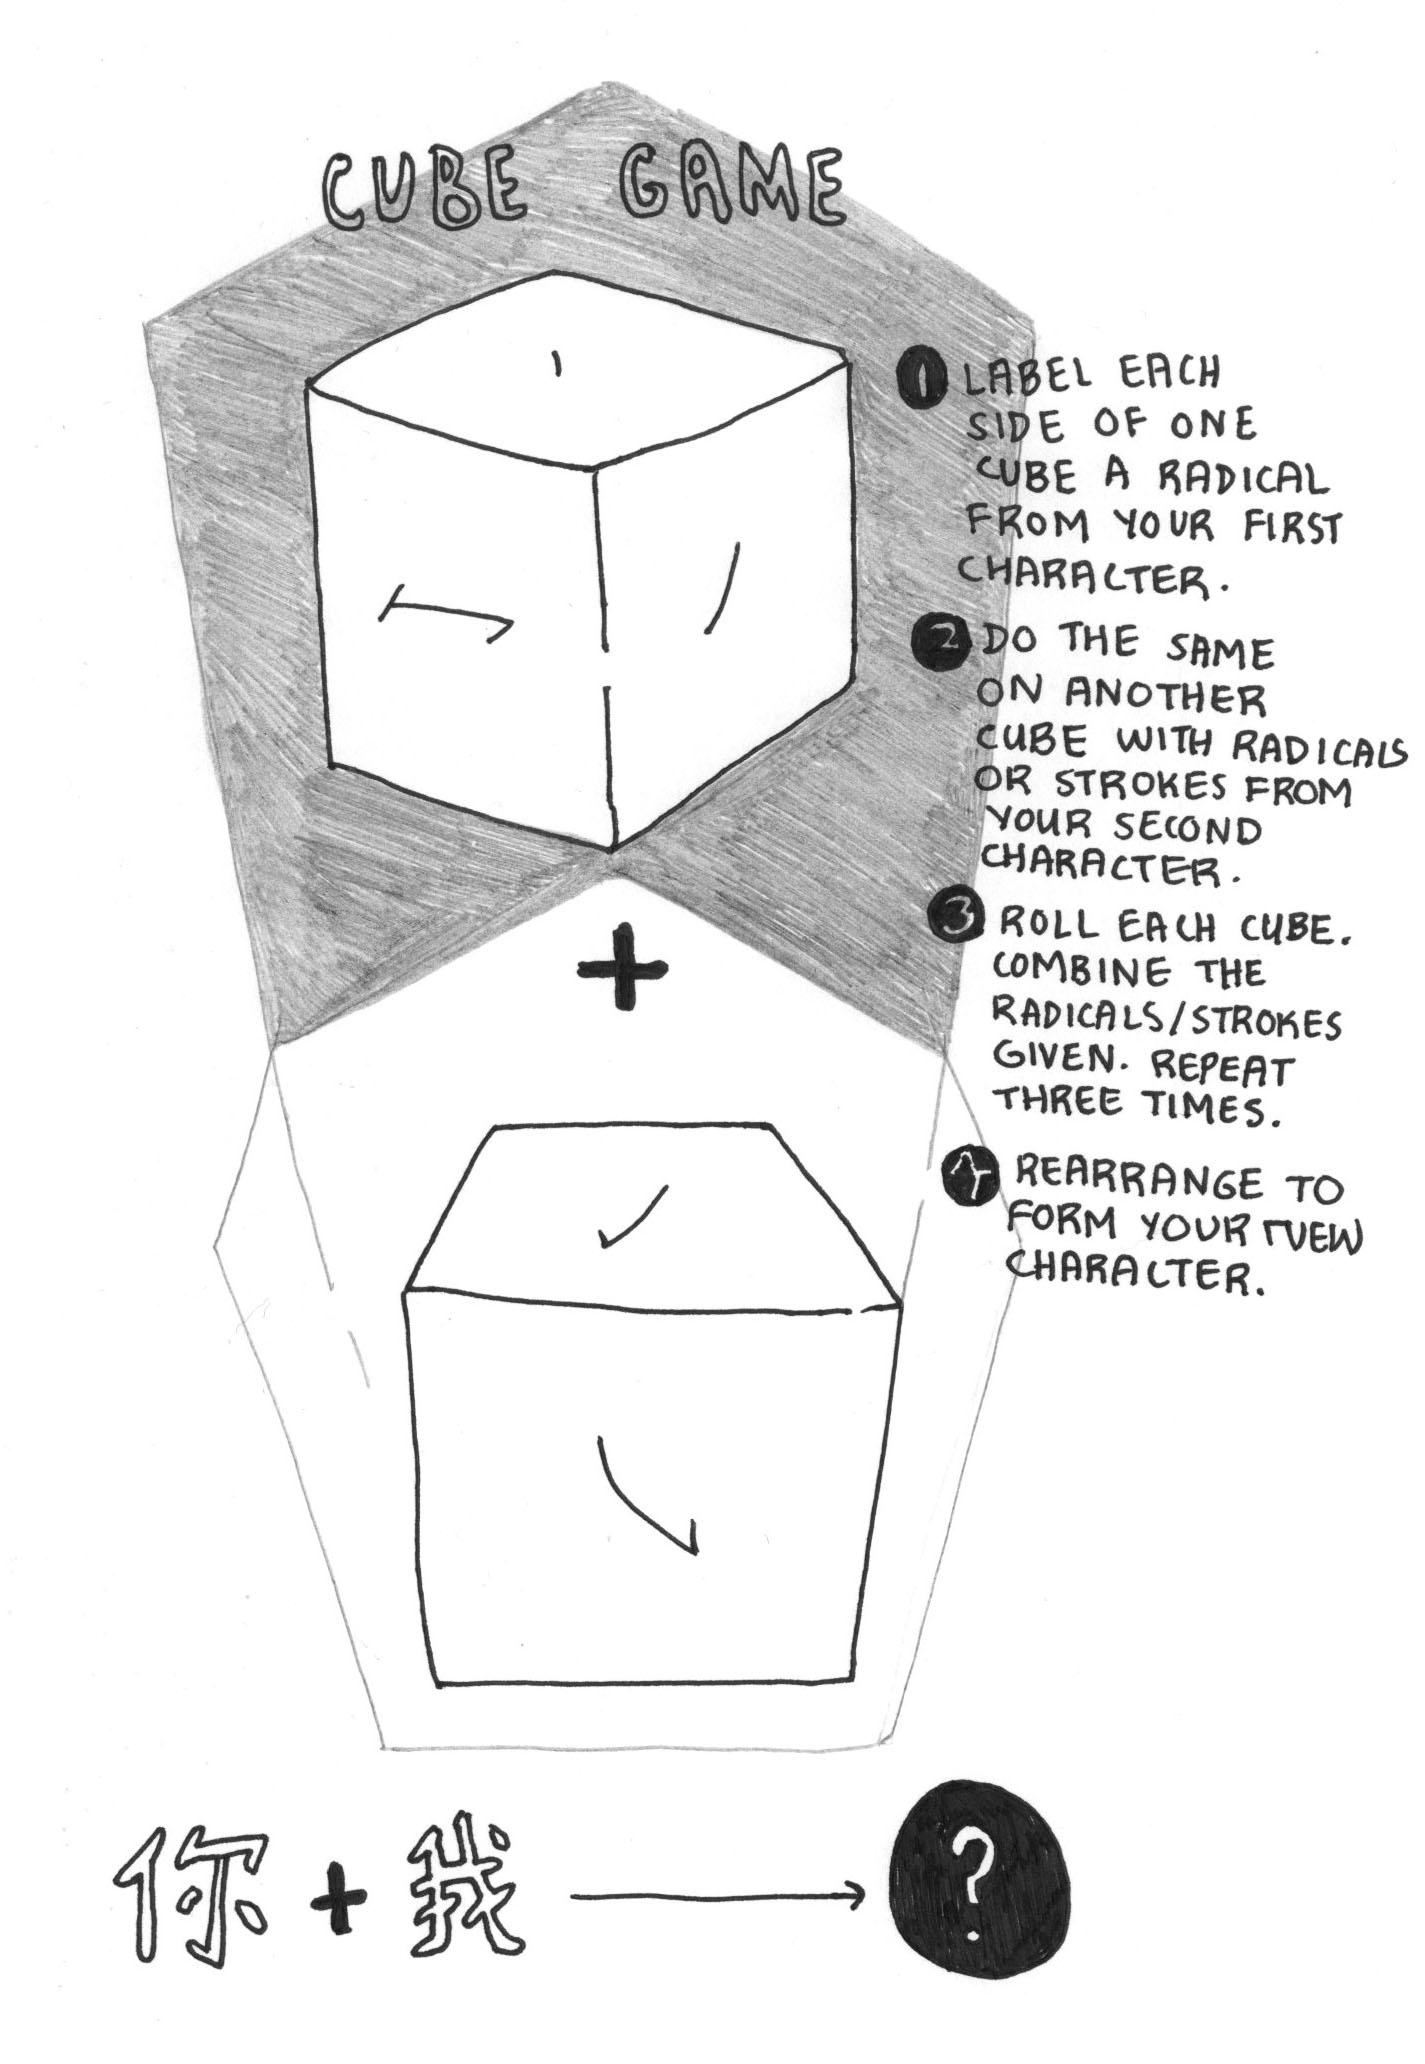 CUBE GAME
1 LABEL EACH
SIDE OF ONE
CUBE A RADICAL
FROM YOUR FIRST
CHARACTER.
2 DO THE SAME
ON ANOTHER
CUBE WITH RADICALS
OR STROKES FROM
YOUR SECOND
CHARACTER.
3 ROLL EACH CUBE.
COMBINE THE
RADICALS/STROKES
GIVEN. REPEAT
THREE TIMES.
4 REARRANGE TO
FORM YOUR NEW
CHARACTER.
+
你 + 我 → ?